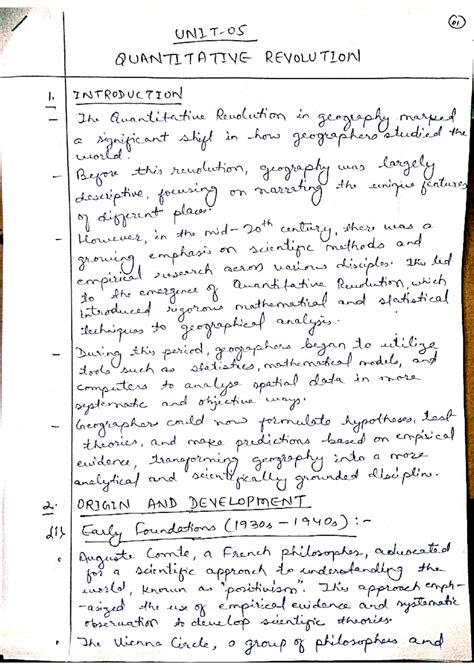 01
UNIT-05
QUANTITATIVE REVOLUTION
1. INTRODUCTION
- The Quantitative Revolution in geography marked
a significant shift in how geographers studied the
world.
- Before this revolution, geography was largely
descriptive, focusing on narrating the unique features
of different places.
- However, in the mid-20th century, there was a
growing emphasis on scientific methods and
empirical research across various disciples. This led
to the emergence of Quantitative Revolution, which
introduced rigorous mathematical and statistical
techniques to geographical analysis.
- During this period, geographers began to utilize
tools such as statistics, mathematical models, and
computers to analyse spatial data in more
systematic and objective ways.
- Geographers could now formulate hypotheses, test
theories, and make predictions based on empirical
evidence, transforming geography into a more
analytical and scientifically grounded discipline.
2. ORIGIN AND DEVELOPMENT
(i) Early Foundations (1930s - 1940s) :-
• Auguste Comte, a French philosopher, advocated
for a scientific approach to understanding the
world, known as "positivism". This approach emph-
-asized the use of empirical evidence and systematic
observation to develop scientific theories.
• The Vienna Circle, a group of philosophers and